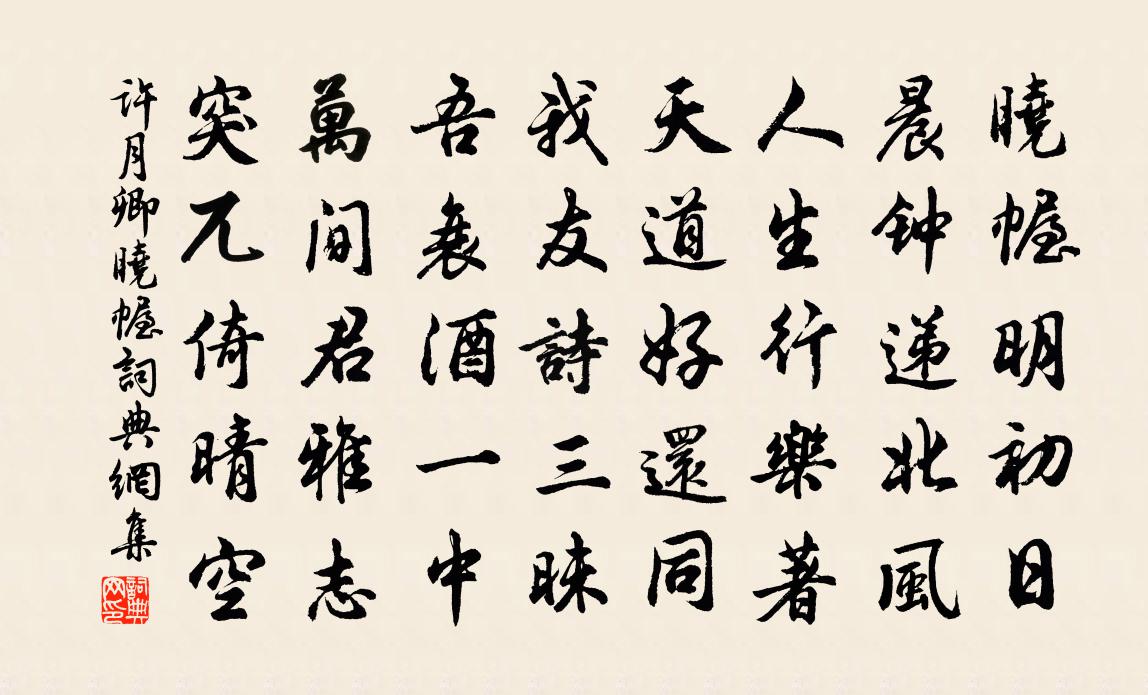 曉幄明初日
晨钟递北風
人生行樂著
天道好還同
我友詩三昧
吾衰酒一中
萬間君雅志
突兀倚晴空
許月卿曉幄詞典網集
詞典网印